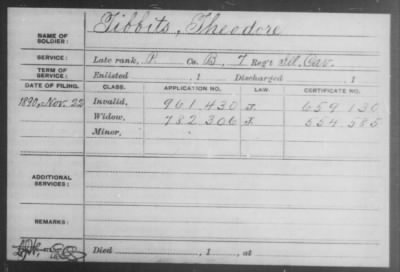 Tibbits, Theodore
NAME OF SOLDIER:
SERVICE: Late rank, P Co. B, 7 Reg't Del. Cav.
TERM OF SERVICE: Enlisted , 1 Discharged , 1
DATE OF FILING. CLASS. APPLICATION NO. LAW. CERTIFICATE NO.
1890, Nov. 22 Invalid, 961.430 J. 659 130
Widow, 782 306 J. 554.585
Minor,
ADDITIONAL SERVICES:
REMARKS:
Died , 1 , at